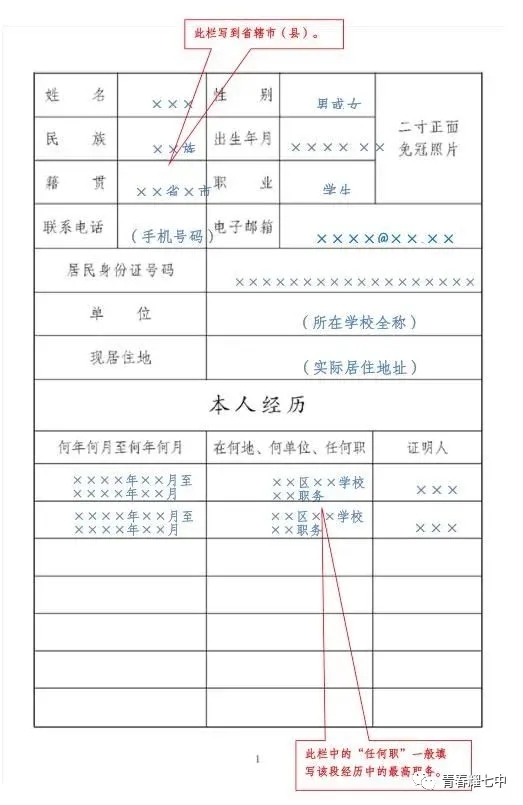 此栏写到省辖市（县）。
姓 名 ××× 性 别 男或女 二寸正面
免冠照片
民 族 ××族 出生年月 ×××× ××
籍 贯 ××省×市 职 业 学生
联系电话 （手机号码） 电子邮箱 ××××@××.××
居民身份证号码 ××××××××××××××××××
单 位 （所在学校全称）
现居住地 （实际居住地址）
本人经历
何年何月至何年何月 在何地、何单位、任何职 证明人
××××年××月至 ××区××学校
××××年××月 ××职务 ×××
××××年××月至 ××区××学校
××××年××月 ××职务 ×××
1
此栏中的“任何职”一般填
写该段经历中的最高职务。
青春耀七中